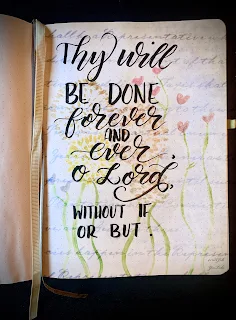 Thy will
BE DONE
forever
AND
ever.
O Lord,
WITHOUT IF
OR BUT.